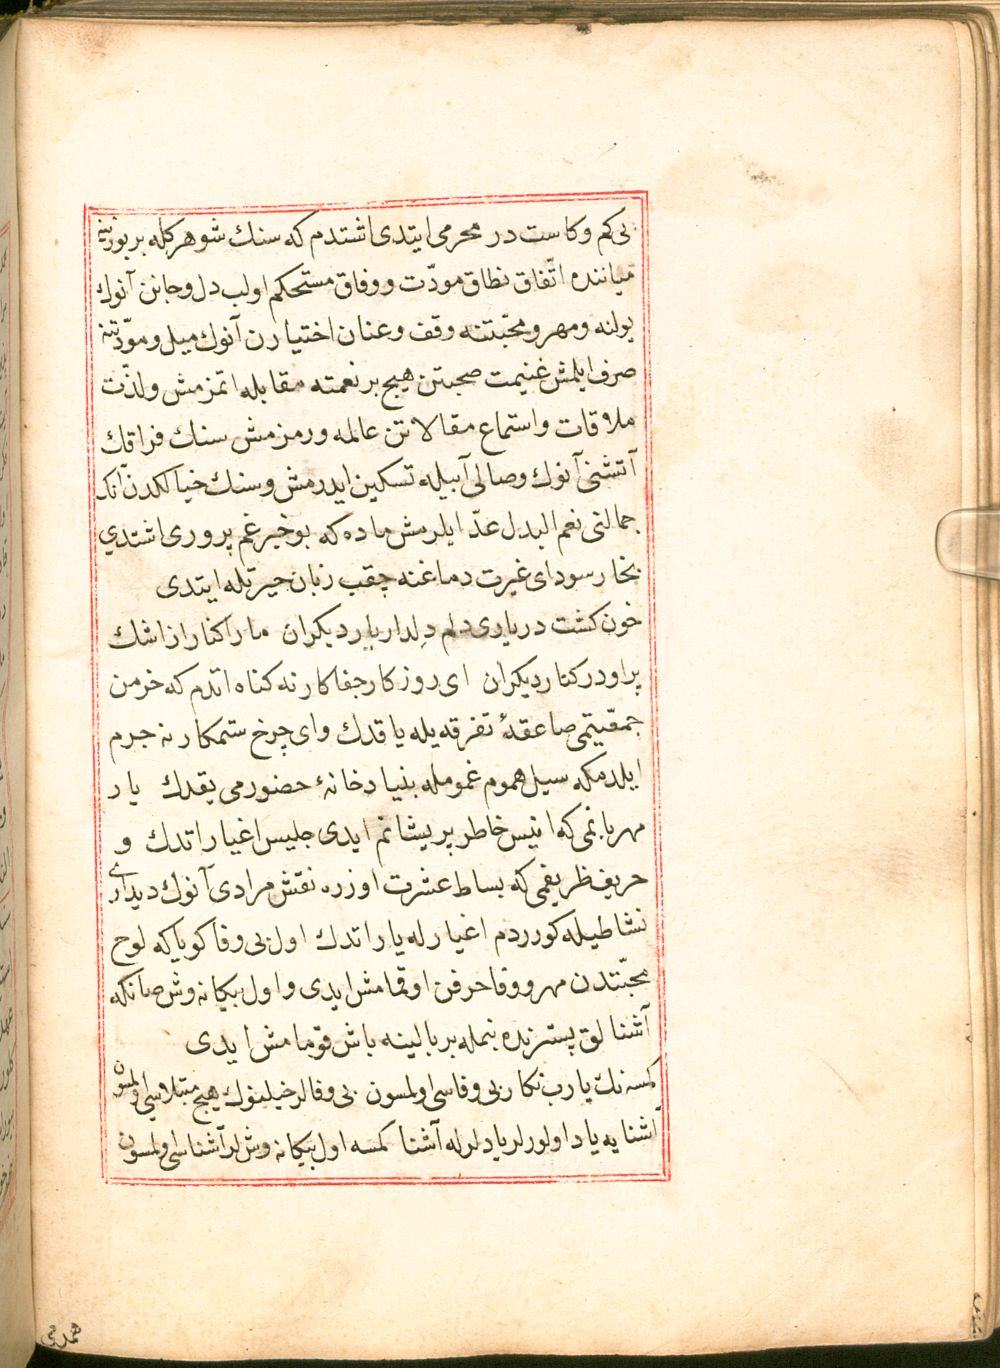 بى كم وكاست در محرمى ايتدى اشتدم كه سنك شوهركله بر بوزينه
ميانندہ اتّفاق نطاق مودّت و وفاق مستحكم اولب دل و جانن آنوك
يولنه و مهر و محبّتنه وقف و عنان اختيارن آنوك ميل و مودّتنه
صرف ايلمش غنيمت صحبتن هيج بر نعمته مقابله اتمزمش ولذّت
ملاقات و استماع مقالاتن عالمه ورمزمش سنك فراقك
آتشنى آنوك وصالى آبيله تسكين ايدرمش و سنك خيالكدن آنك
جمالنى نعم البدل عدّ ايلرمش ماده كه بو خبر غم پرورى اشتدى
بخار سوداى غيرت دماغنه چقب زبان حيرتله ايتدى
خون كشت دريارى دلم دلدار يار ديكران ما را كنار از اشك
پر او در كنار ديكران اى روزكار جفاكار نه كناه اتدم كه خرمن
جمعيّتمى صاعقهٔ تفرقه يله ياقدك واى چرخ ستمكار نه جرم
ايلدمكه سيل هموم غمومله بنياد خانهٔ حضورمى يقدك يار
مهربانمى كه انيس خاطر پريشانم ايدى جليس اغيار اتدك و
حريف ظريفمى كه بساط عشرت اوزره نقش مرادى آنوك ديدارى
نشاطيله كورردم اغيارله يار اتدك اول بى وفا كويا كه لوح
محبّتدن مهر و وفا حرفن اوقمامش ايدى و اول بيكانه وش صانكه
آشنالق بسترنده بنمله بر بالينه باش قومامش ايدى
كمسه نك يارب نكار بى وفاسى اولمسون بى وفالر خيلنوك هيج مبتلاسى اولمسون
آشنايه ياد اولورلر يادلرله آشنا كمسه اول بيكانه وشلر آشناسى اولمسون
همدمى